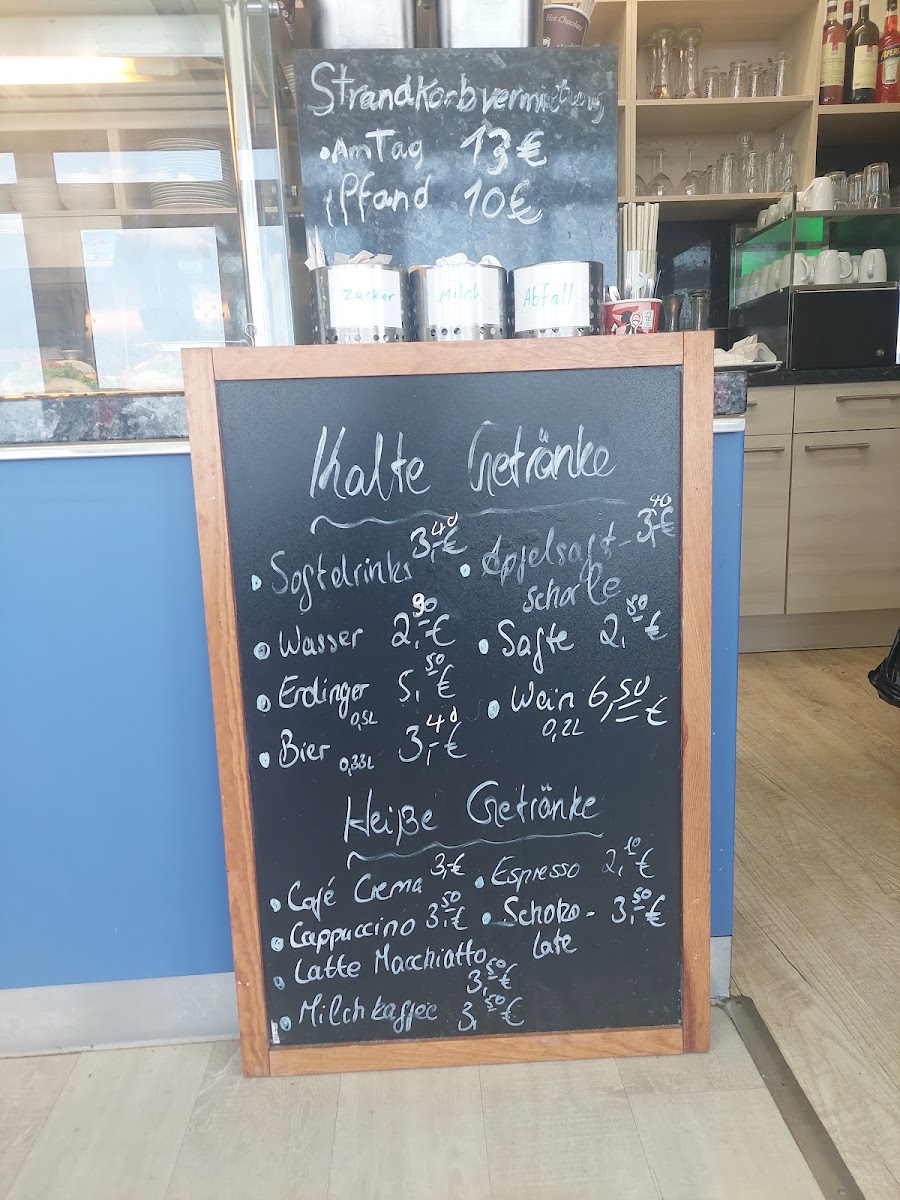 Hot Chocolate
Strandkorbvermietung
• Am Tag 13€
Pfand 10€
Zucker
Milch
Abfall
Kalte Getränke
• Softdrinks 3,40€
• Apfelsaft-
schorle 3,40€
• Wasser 2,90€
• Säfte 2,80€
• Erdinger 5,50€
0,5L
• Wein 6,50€
0,2L
• Bier 0,33L 3,40€
Heiße Getränke
• Café Crema 3,-€
• Espresso 2,10€
• Cappuccino 3,50€
• Schoko-
late 3,50€
• Latte Macchiatto
3,50€
• Milchkaffee 3,50€